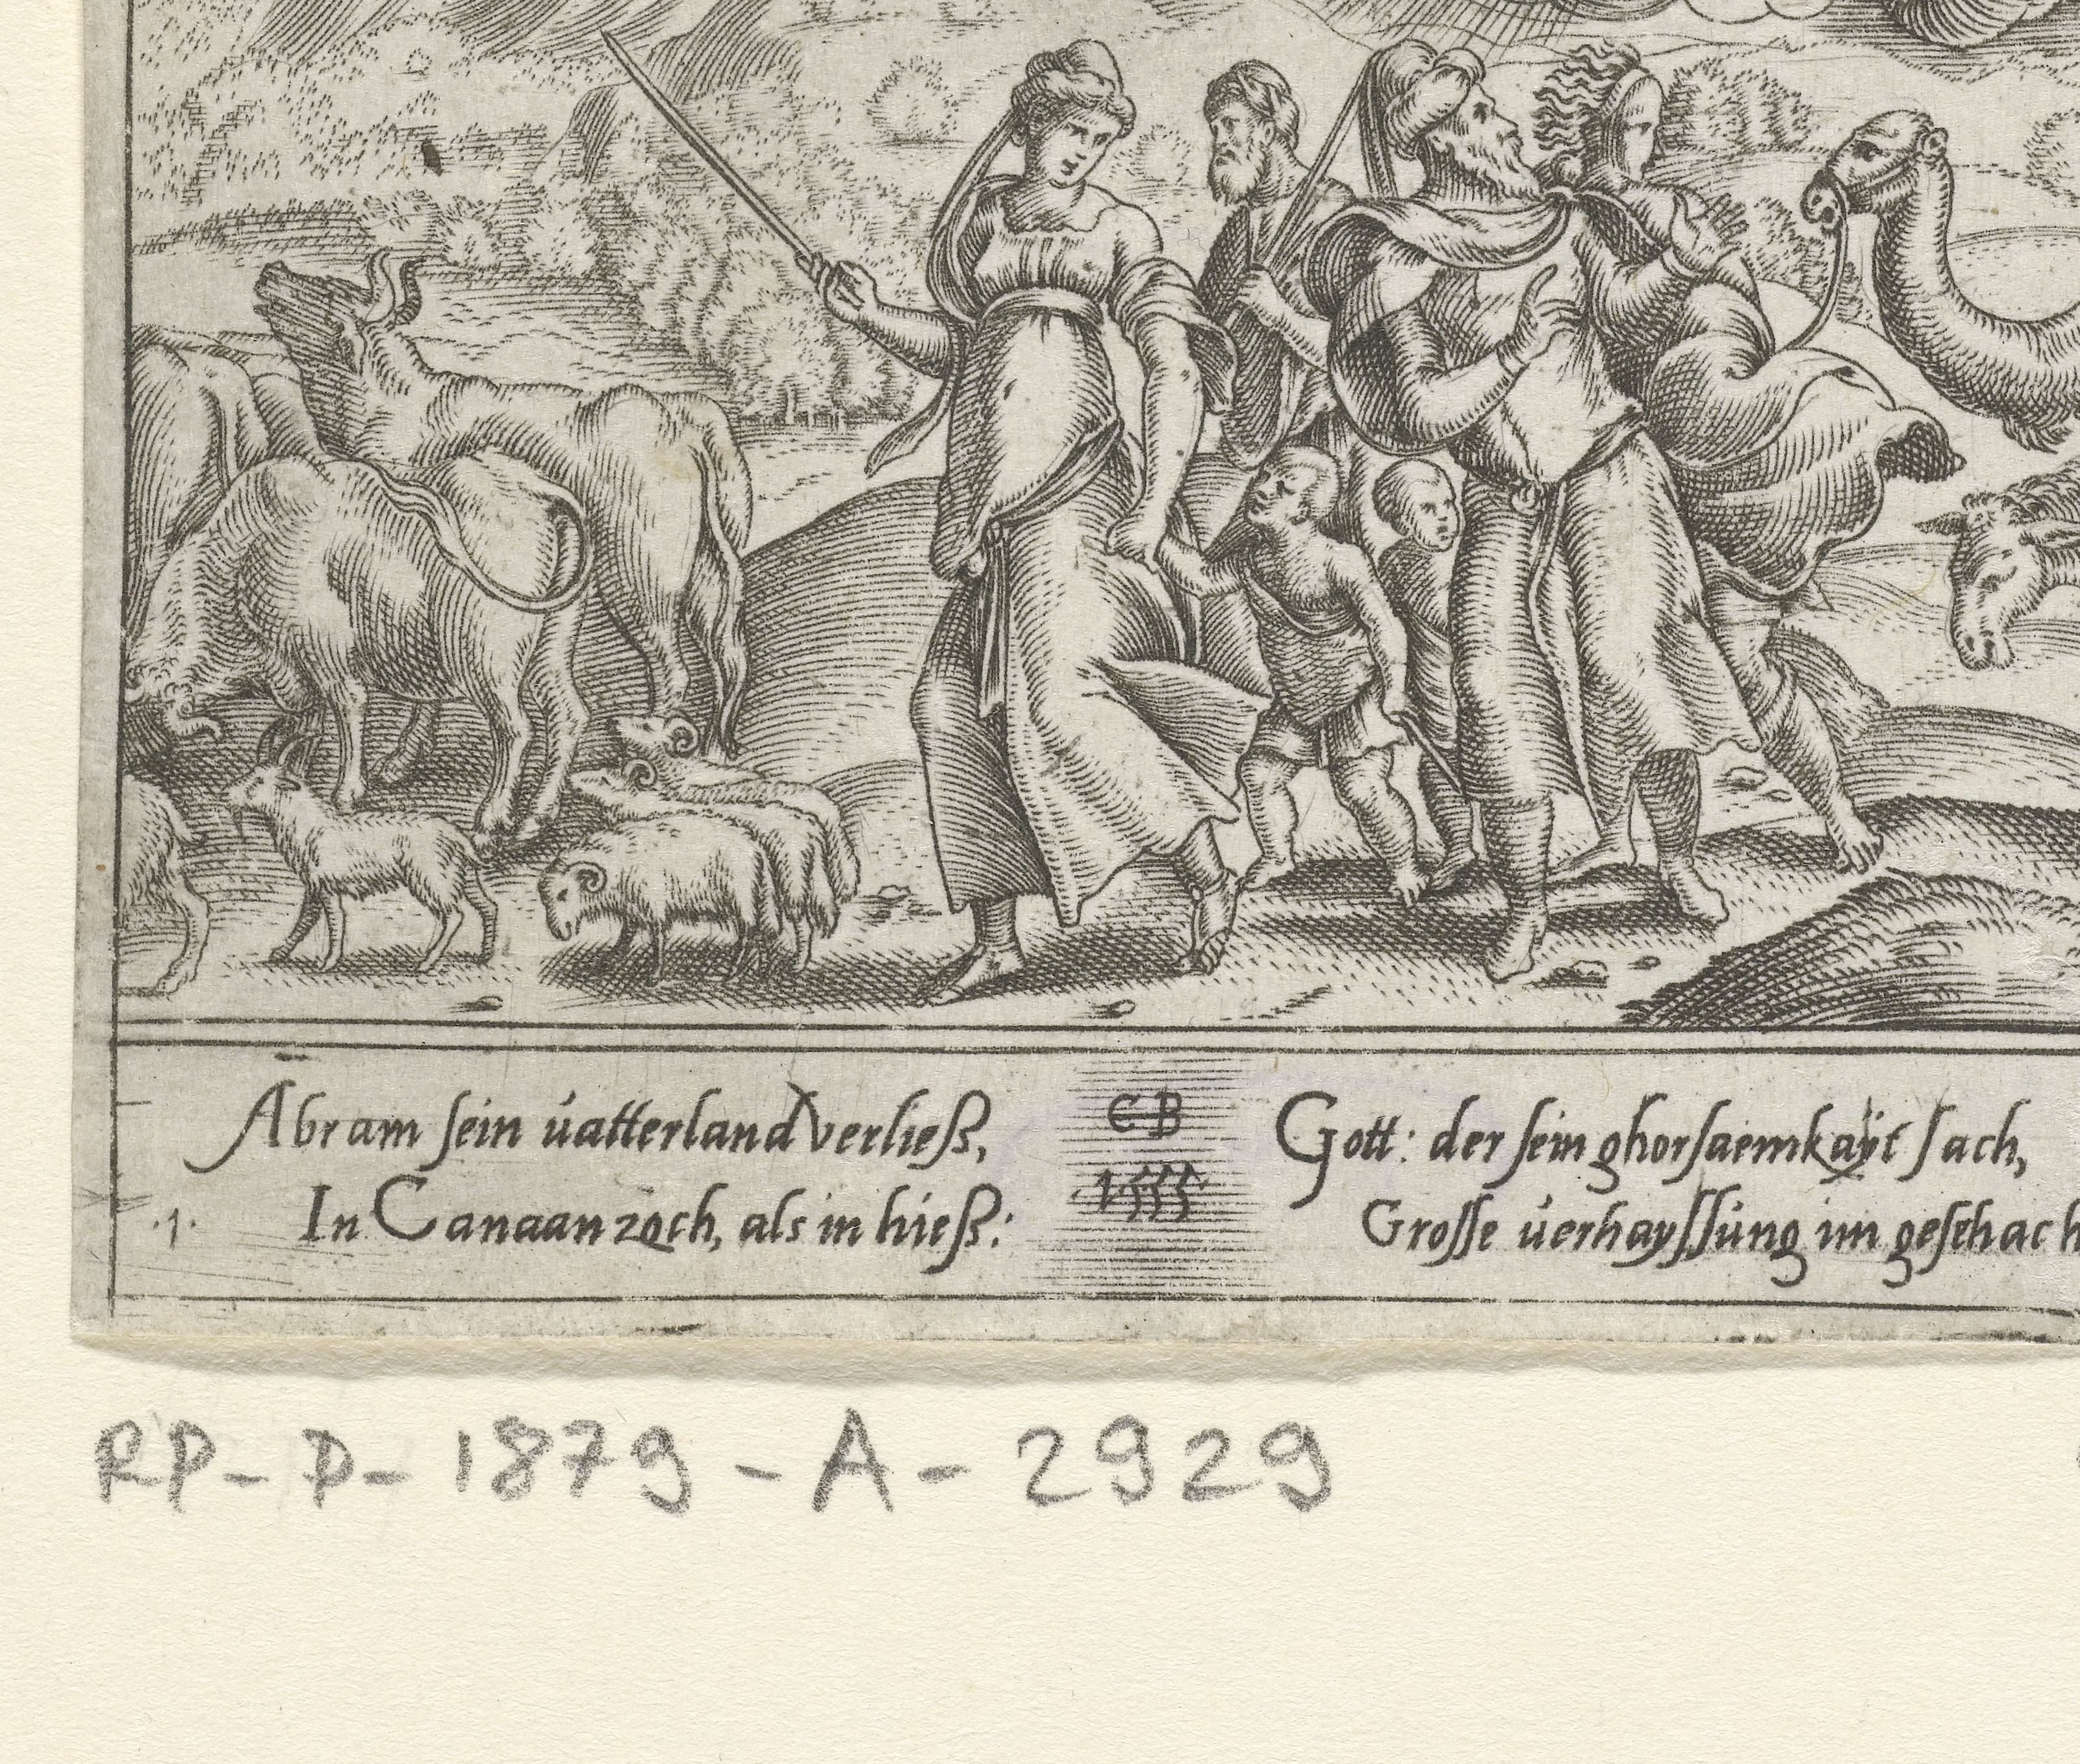 Abram sein vatterland verließ,
In Canaan zoch, als in hieß:
.1.
CB
1555
Gott: der sein ghorsaemkaÿt sach,
Grosse verhayssung im geschach
RP-P-1879-A-2929